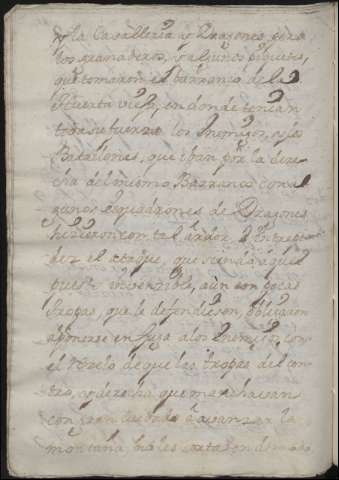 La Cavalleria, y Dragones, pero
los granaderos, y algunos piquetes,
que tomaron el barranco de la
Puerta vieja, en donde tenian
toda su fuerza los Enemigos, y los
Batallones, que iban por la dere-
cha del mismo Barranco con al
gunos esquadrones de Dragones
hizieron con tal ardor, è intrepi
dez el ataque, que siendo aquel
puesto invencible, aùn con pocas
tropas, que le defendiesen, obligaron
a ponerse en fuga a los Enemigos, con
el rezelo de que las tropas del cen
tro, y derecha que marchavan
con gran cuidado à avanzar la
montaña, les cortasen